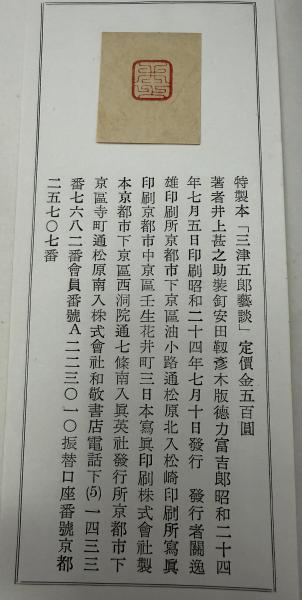 特製本「三津五郎藝談」定價金五百圓
著者井上甚之助裝釘安田靫彥木版德力富吉郎昭和二十四
年七月五日印刷昭和二十四年七月十日發行　發行者關逸
雄印刷所京都市下京區油小路通松原北入松崎印刷所寫眞
印刷京都市中京區壬生花井町三日本寫眞印刷株式會社製
本京都市下京區西洞院通七條南入眞英社發行所京都市下
京區寺町通松原南入株式會社和敬書店電話下(5)一四三三
番七六八二番會員番號A二二三〇一〇振替口座番號京都
二五七〇七番